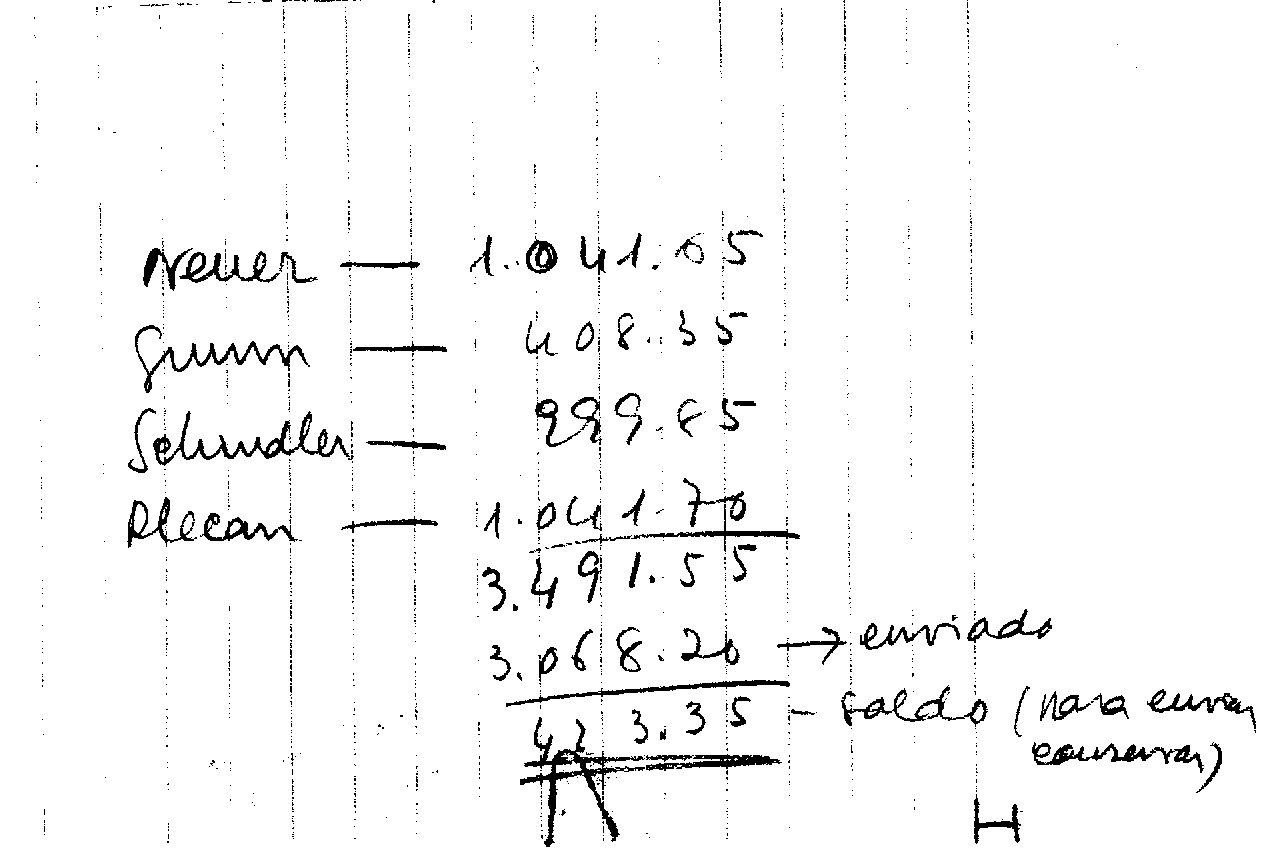 Neuer — 1.041.05
Grunn — 408.35
Schindler — 999.85
1.041.70
3.491.55
3.068.20 → enviado
423.35 - Saldo (para enviar
H